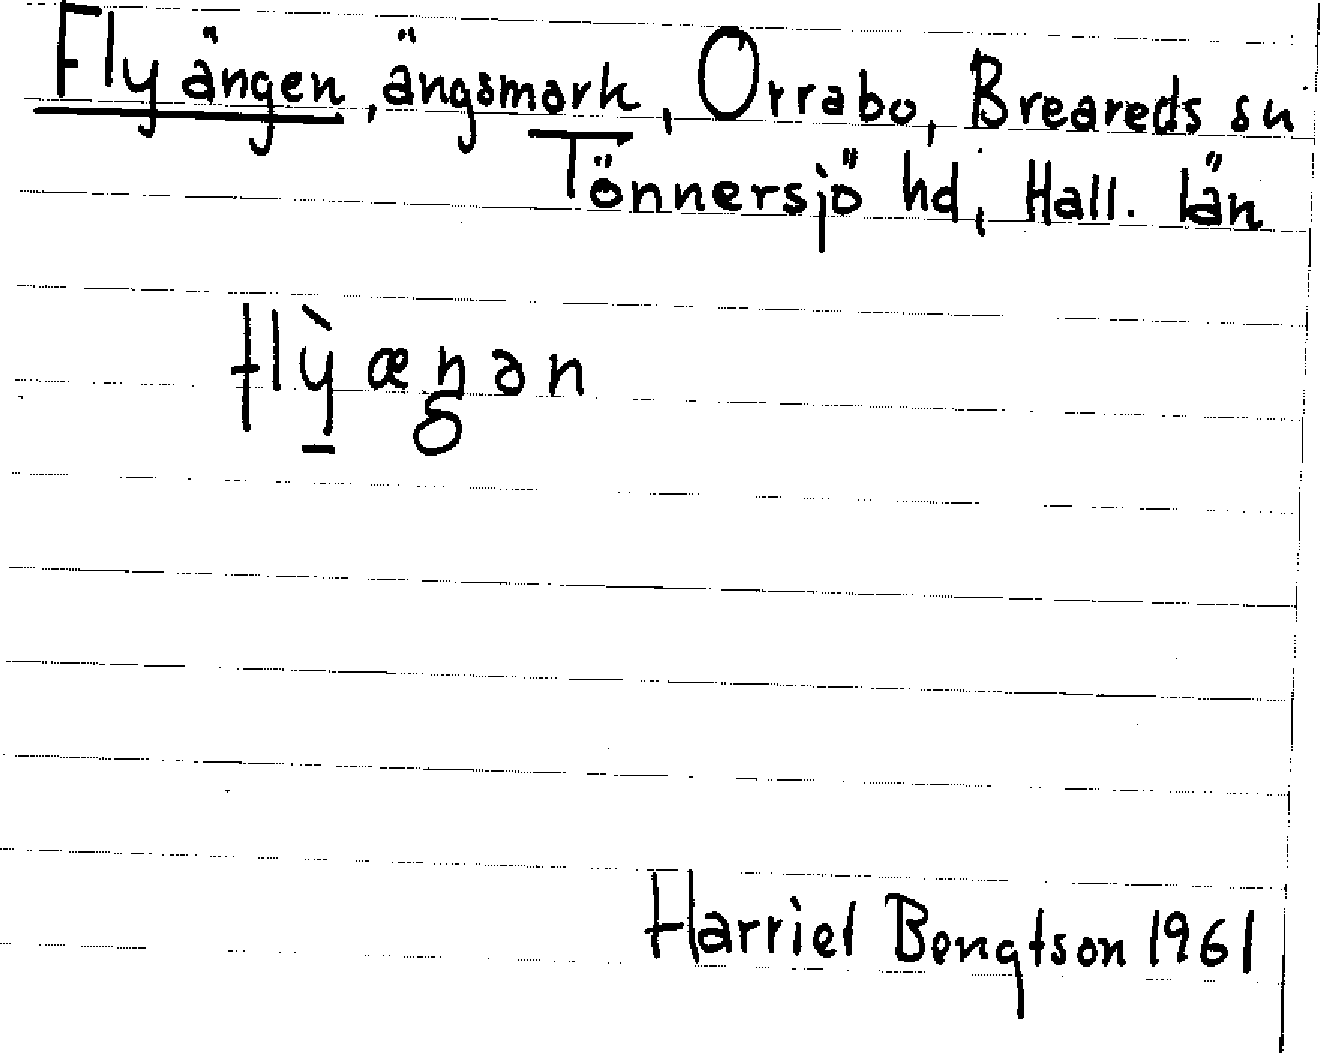 Flyängen, ängsmark, Orrabo, Breareds sn
Tönnersjö hd, Hall. län
flỳ̠æŋən
Harriet Bengtson 1961